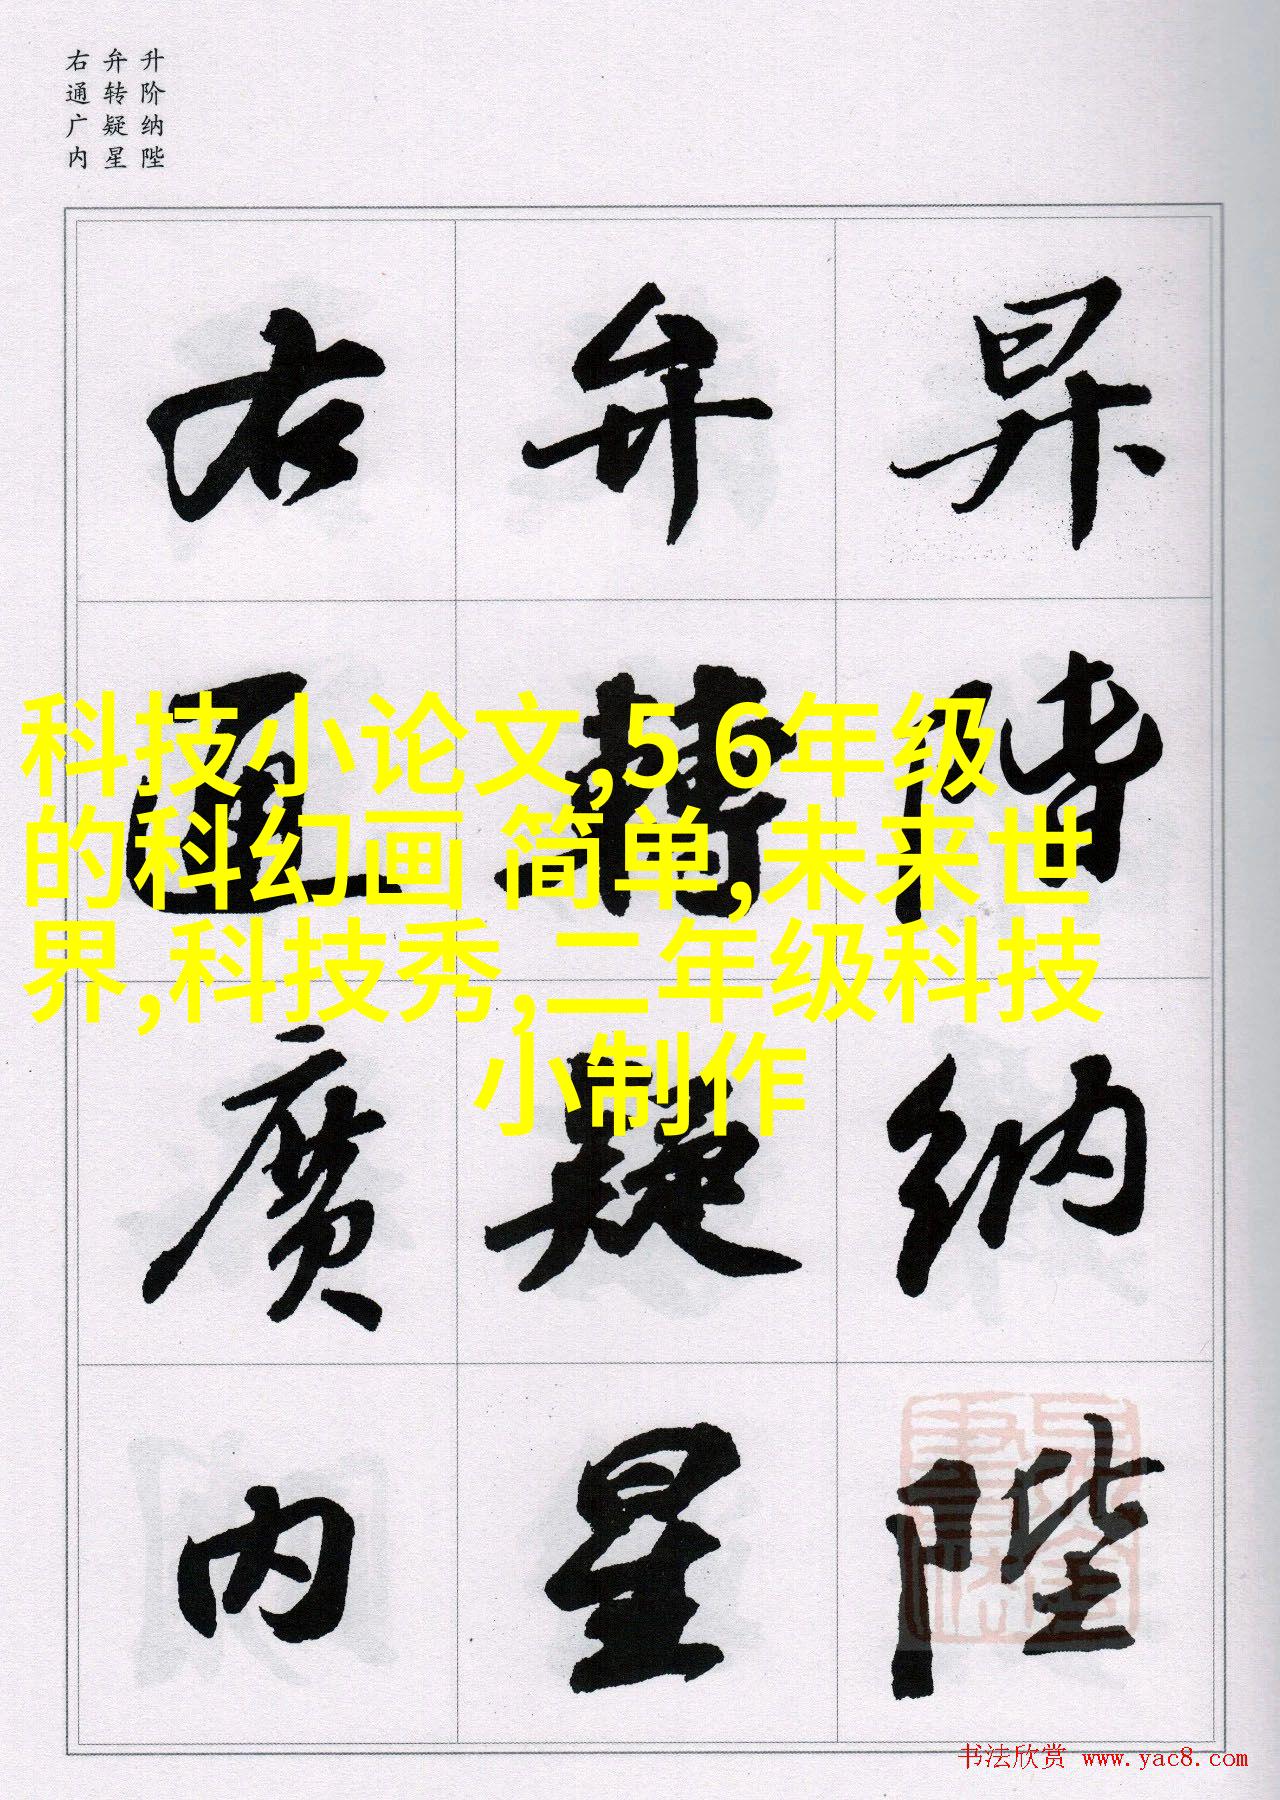 升阶纳陛
弁转疑星
右通广内
昇階納陛
弁轉疑星
右通廣內
科技小论文,5 6年级
的科幻画 简单,未来世
界,科技秀,二年级科技
小制作
书法欣赏 www.yac8.com